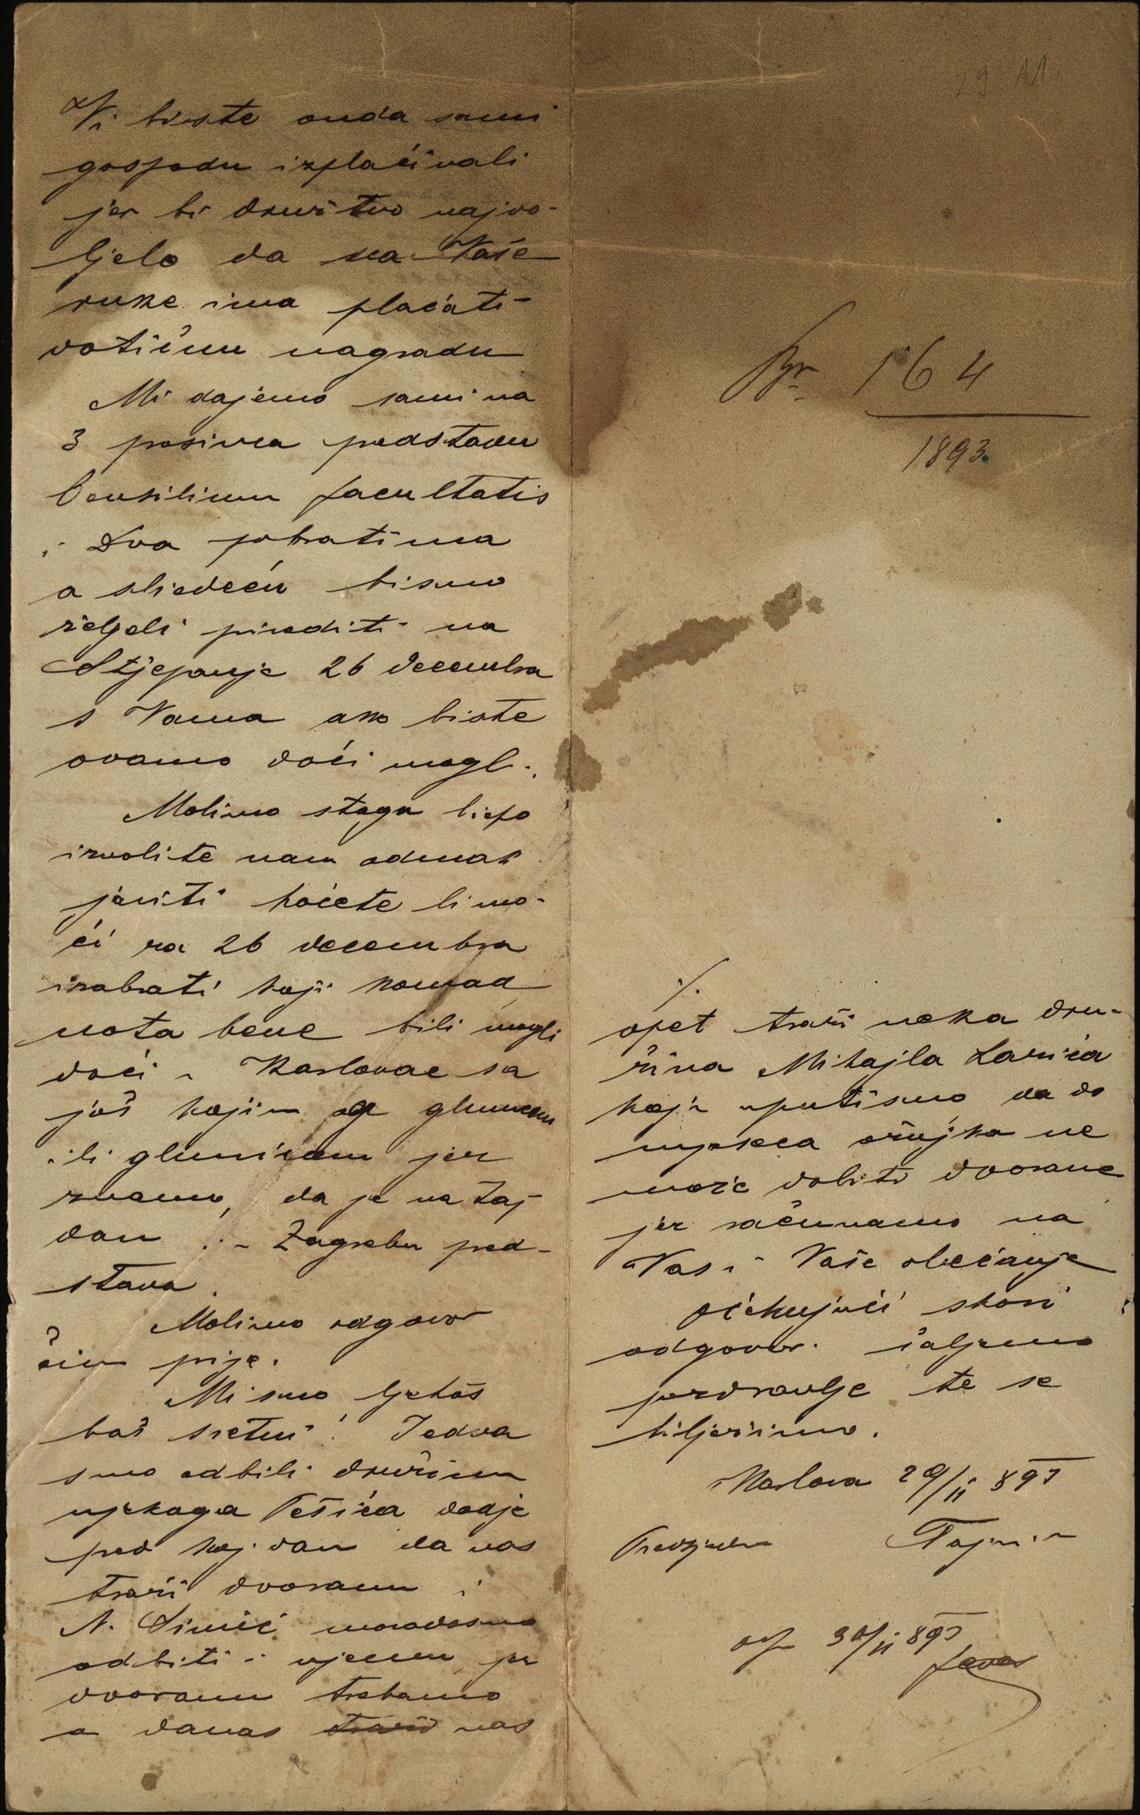 Vi biste onda sami
gospodu izplaćivali
jer bi družtvo najvo-
ljelo da na Vaše
ruke ima plaćati
dotičnu nagradu
Mi dajemo sami na
3 prosinca predstavu
Consilium facultatis
i Dva pobratima
a sliedeću bismo
željeli prirediti na
Stjepanje 26 decembra
s Vama ako biste
ovamo doći mogli.
Molimo stoga liepo
izvolite nam odmah
javiti hoćete li mo-
ći za 26 decembra
izabrati koji komad
nota bene bili mogli
doći u Karlovac sa
još kojim glumcem
ili glumicom jer
znamo, da je na taj
dan i u Zagrebu pred-
stava.
Molimo odgovor
čim prije.
Mi smo ljetos
baš sretni! Jedva
smo odbili družinu
njekoga Pešića dodje
pred koj dan da nas
traži dvoranu i
N. Simić moradosmo
odbiti i njemu jer
dvoranu trebamo
a danas traži nas
29 11.
Br. 164
1893.
./.
opet traži neka dru-
žina Mihajla Lazića
koju uputismo da do
mjeseca ožujka ne
može dobiti dvorane
jer računamo na
Vas i Vaše obećanje
Očekujući skori
odgovor šaljemo
pozdravlje te se
biljezimo.
Karlovac 29/11 893
Predsjednik Tajnik
30/11 893